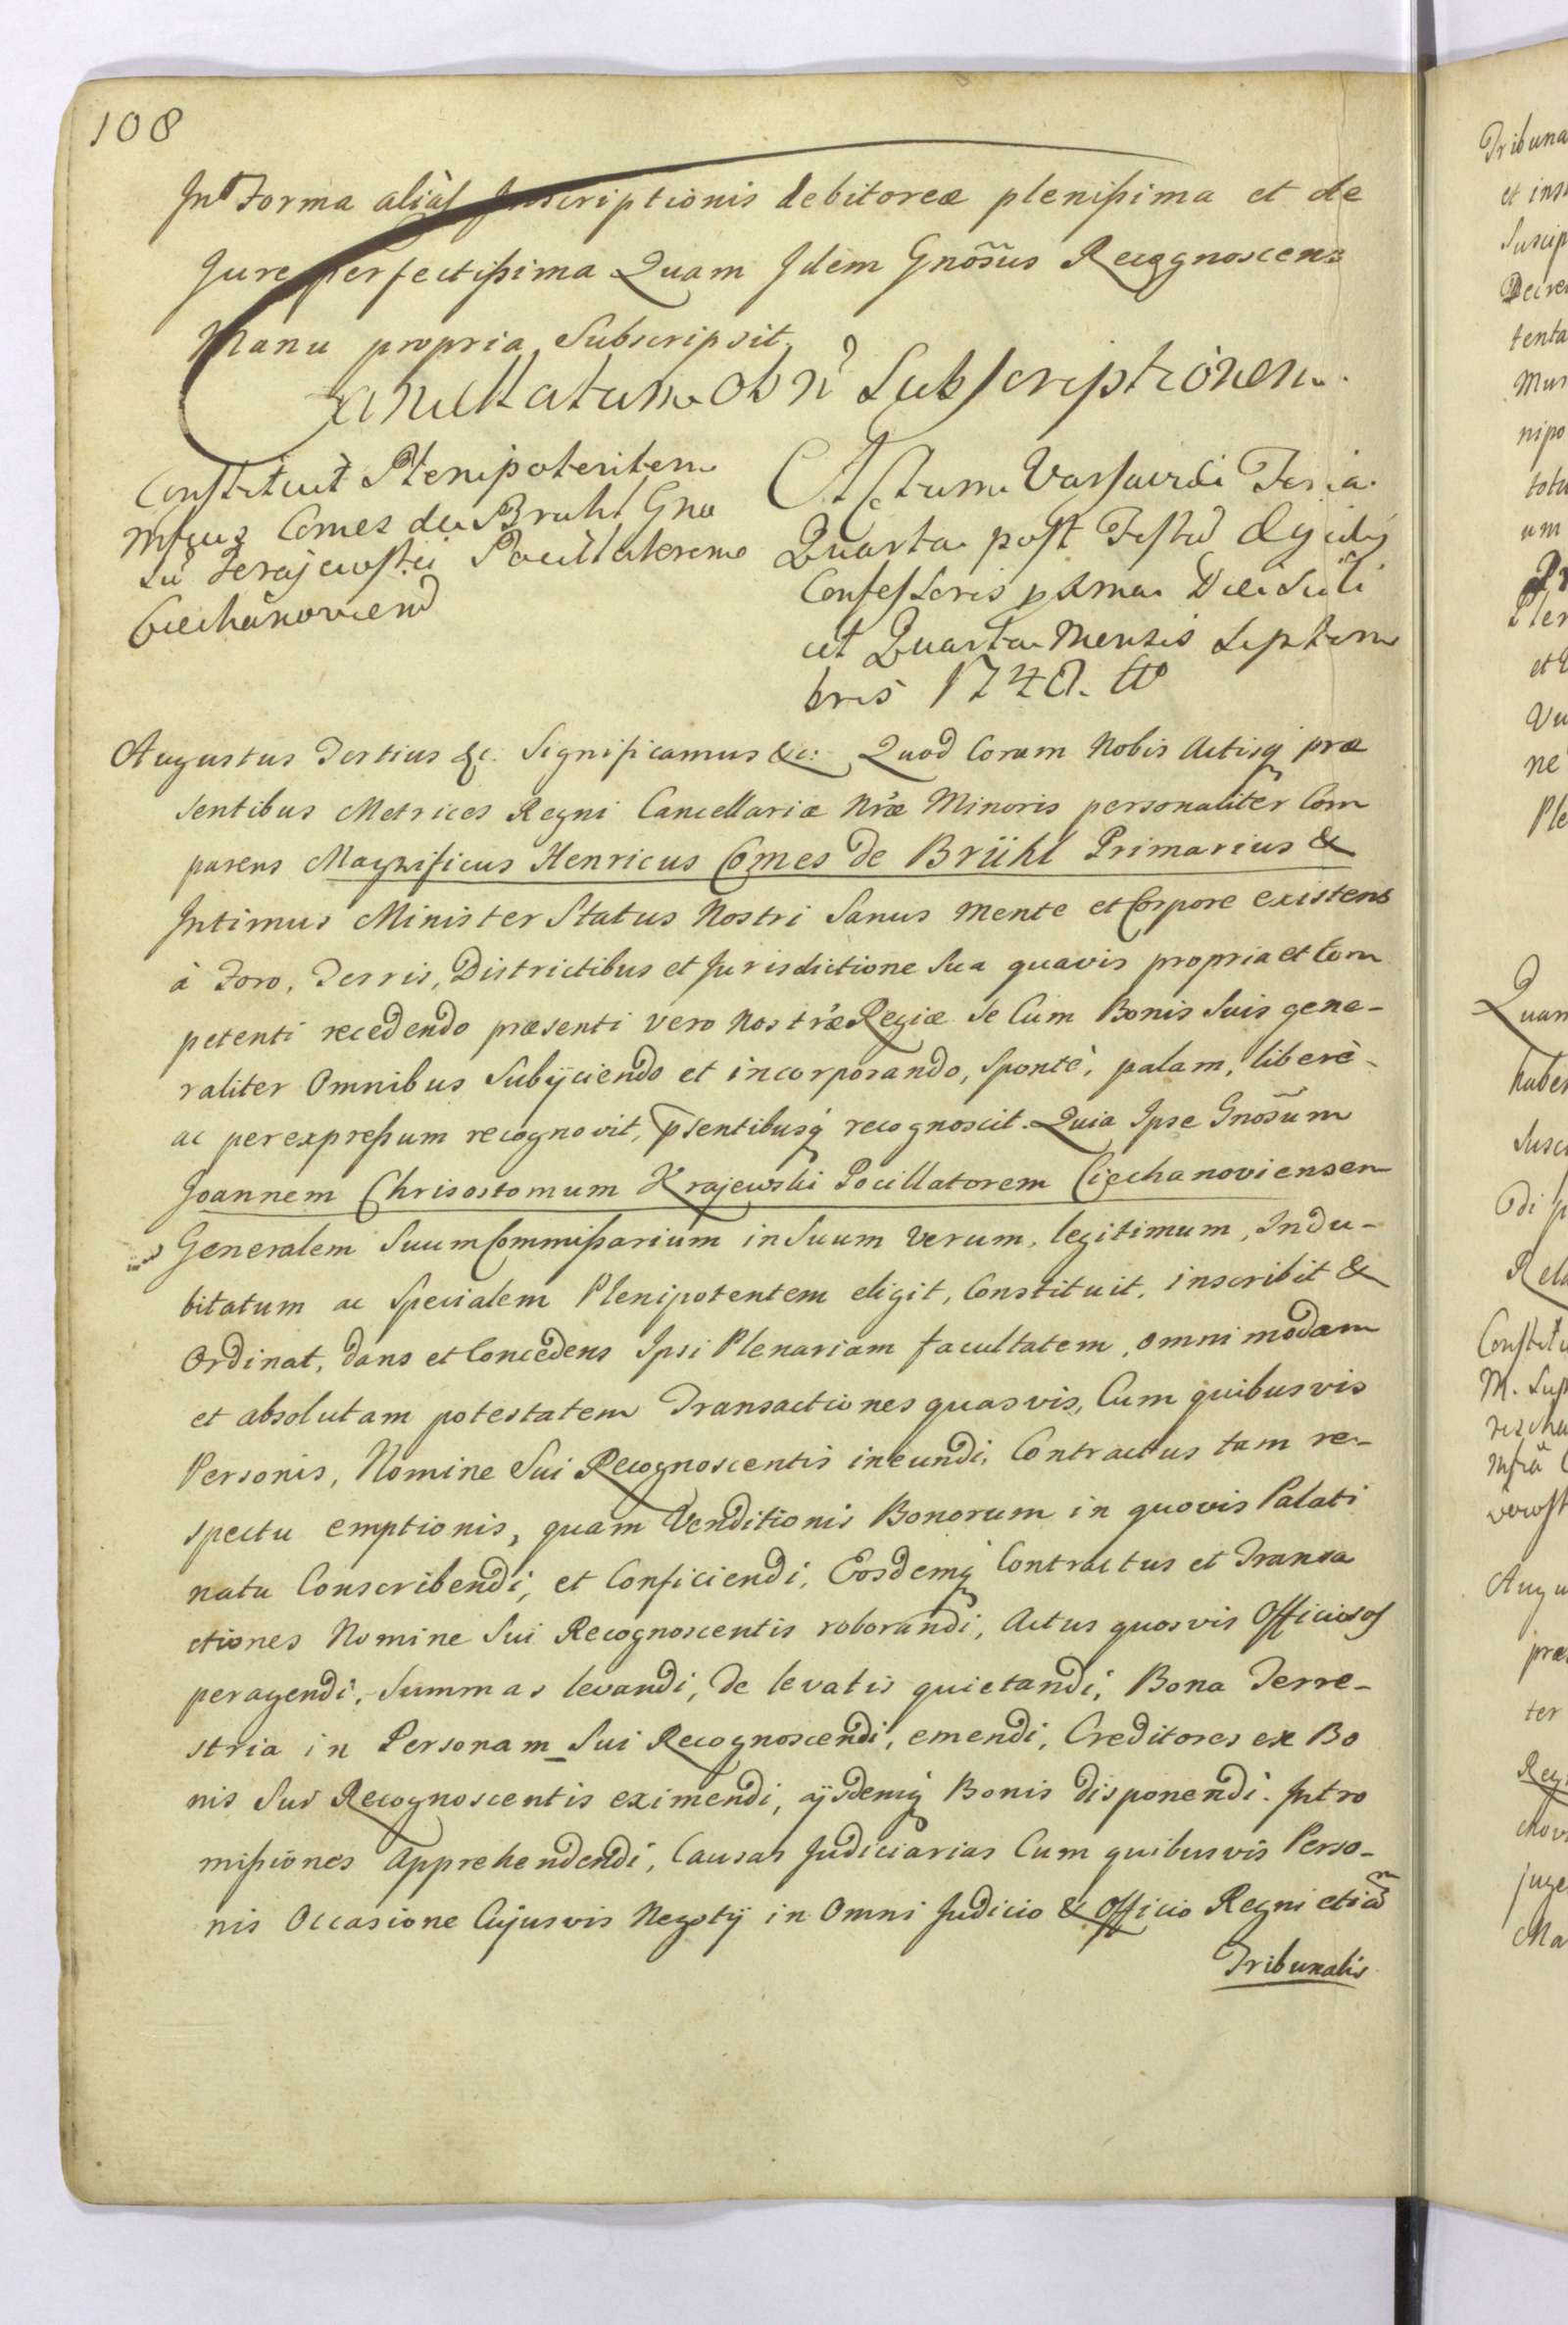 108
In Forma aliàs Inscriptionis debitoreæ plenißima et de
Jure perfectißima Quam Idem Gnõsus Recognoscens
Manu propria Subscripsit.
Cancellatum ob n̄ Subscriptionem.
Constituit Plenipotentem
Mfcus Comes de Bruhl Gno
sũ Krajewski Pocillatorem
Ciechanovien
Actum Varsaviæ Feria
Quarta post Festũ Egidij
Confessoris pxma Die Scilt
et Quarta Mensis Septem
bris 1748.
Augustus Tertius &c. Significamus &c: Quod Coram Nobis Actisq præ
sentibus Metrices Regni Cancellariæ Nræ Minoris personaliter Com
parens Magnificus Henricus Comes de Brühl Primarius &
Intimus Minister Status Nostri Sanus mente et Corpore existens
à Foro, Terris, Districtibus et Jurisdictione Sua quavis propria et Com
petenti recedendo præsenti vero Nostræ Regiæ se Cum Bonis Suis gene-
raliter Omnibus Subijciendo et incorporando, Sponte, palam, liberè-
ac per expreßum recognovit, p̄sentibusq recognoscit. Quia Ipse Gnõsum
Joannem Chrisostomum Krajewski Pocillatorem Ciechanoviensem
Generalem Suum Commißarium in Suum Verum, legitimum, Indu-
bitatum ac Specialem Plenipotentem eligit, Constituit, inscribit &
Ordinat, dans et Concedens Ipsi Plenariam facultatem, omnimodam
et absolutam potestatem Transactiones quasvis, Cum quibusvis
Personis, Nomine Sui Recognoscentis ineundi, Contractus tam re-
spectu emptionis, quam Venditionis Bonorum in quovis Palati
natu Conscribendi, et Conficiendi, Eosdemq Contractus et Transa
ctiones Nomine Sui Recognoscentis roborandi, Actus quosvis Officiosos
peragendi, Summas levandi, de levatis quietandi, Bona Terre-
stria in Personam Sui Recognoscendi, emendi, Creditores ex Bo
nis Sui Recognoscentis eximendi, ijsdemq Bonis disponendi. Intro
mißiones Apprehendendi, Causas Judiciarias Cum quibusvis Perso-
nis Occasione Cujusvis Negotij in Omni Judicio & Officio Regni etiã
Tribunalis